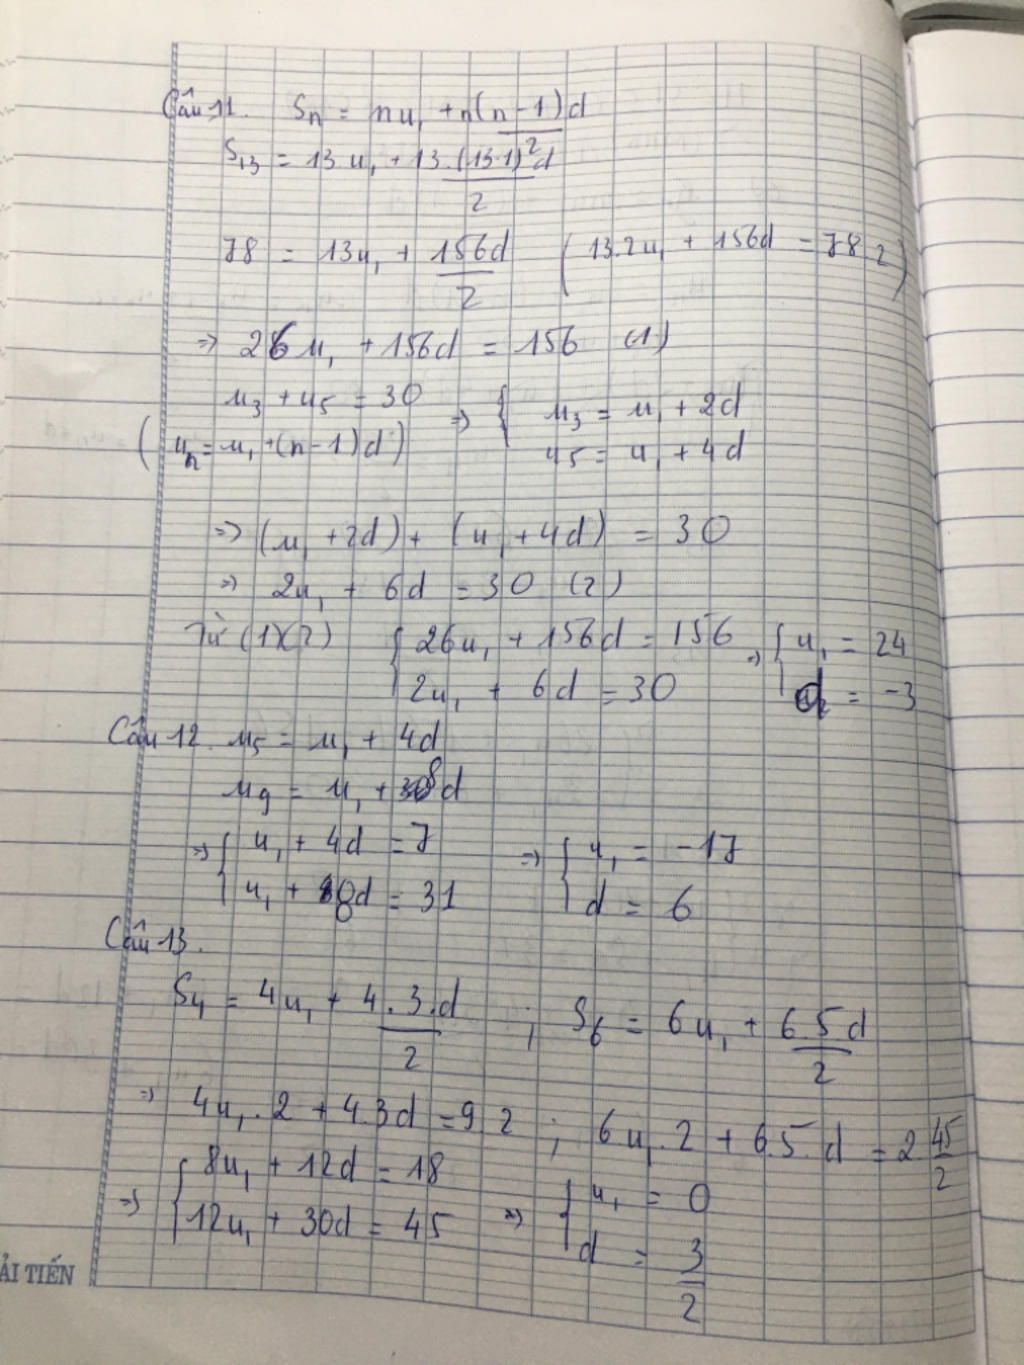 Câu 11. Sn = nu₁ + n(n-1)d/2
S₁₃ = 13.u₁ + 13.(13-1)d/2
78 = 13u₁ + 156d/2 (13.2u₁ + 156d = 78.2)
=> 26u₁ + 156d = 156 (1)
u₃ + u₅ = 30 => { u₃ = u₁ + 2d
(uₙ = u₁ + (n-1)d) u₅ = u₁ + 4d
=> (u₁ + 2d) + (u₁ + 4d) = 30
=> 2u₁ + 6d = 30 (2)
Từ (1)(2) { 26u₁ + 156d = 156 => { u₁ = 24
2u₁ + 6d = 30 d = -3
Câu 12. u₅ = u₁ + 4d
u₉ = u₁ + 8d
=> { u₁ + 4d = 7 => { u₁ = -17
u₁ + 8d = 31 d = 6
Câu 13.
S₄ = 4u₁ + 4.3.d/2 ; S₆ = 6u₁ + 6.5d/2
=> 4u₁.2 + 4.3d = 9.2 ; 6u₁.2 + 6.5.d = 2 45/2
=> { 8u₁ + 12d = 18 => { u₁ = 0
12u₁ + 30d = 45 d = 3/2
ẢI TIẾN